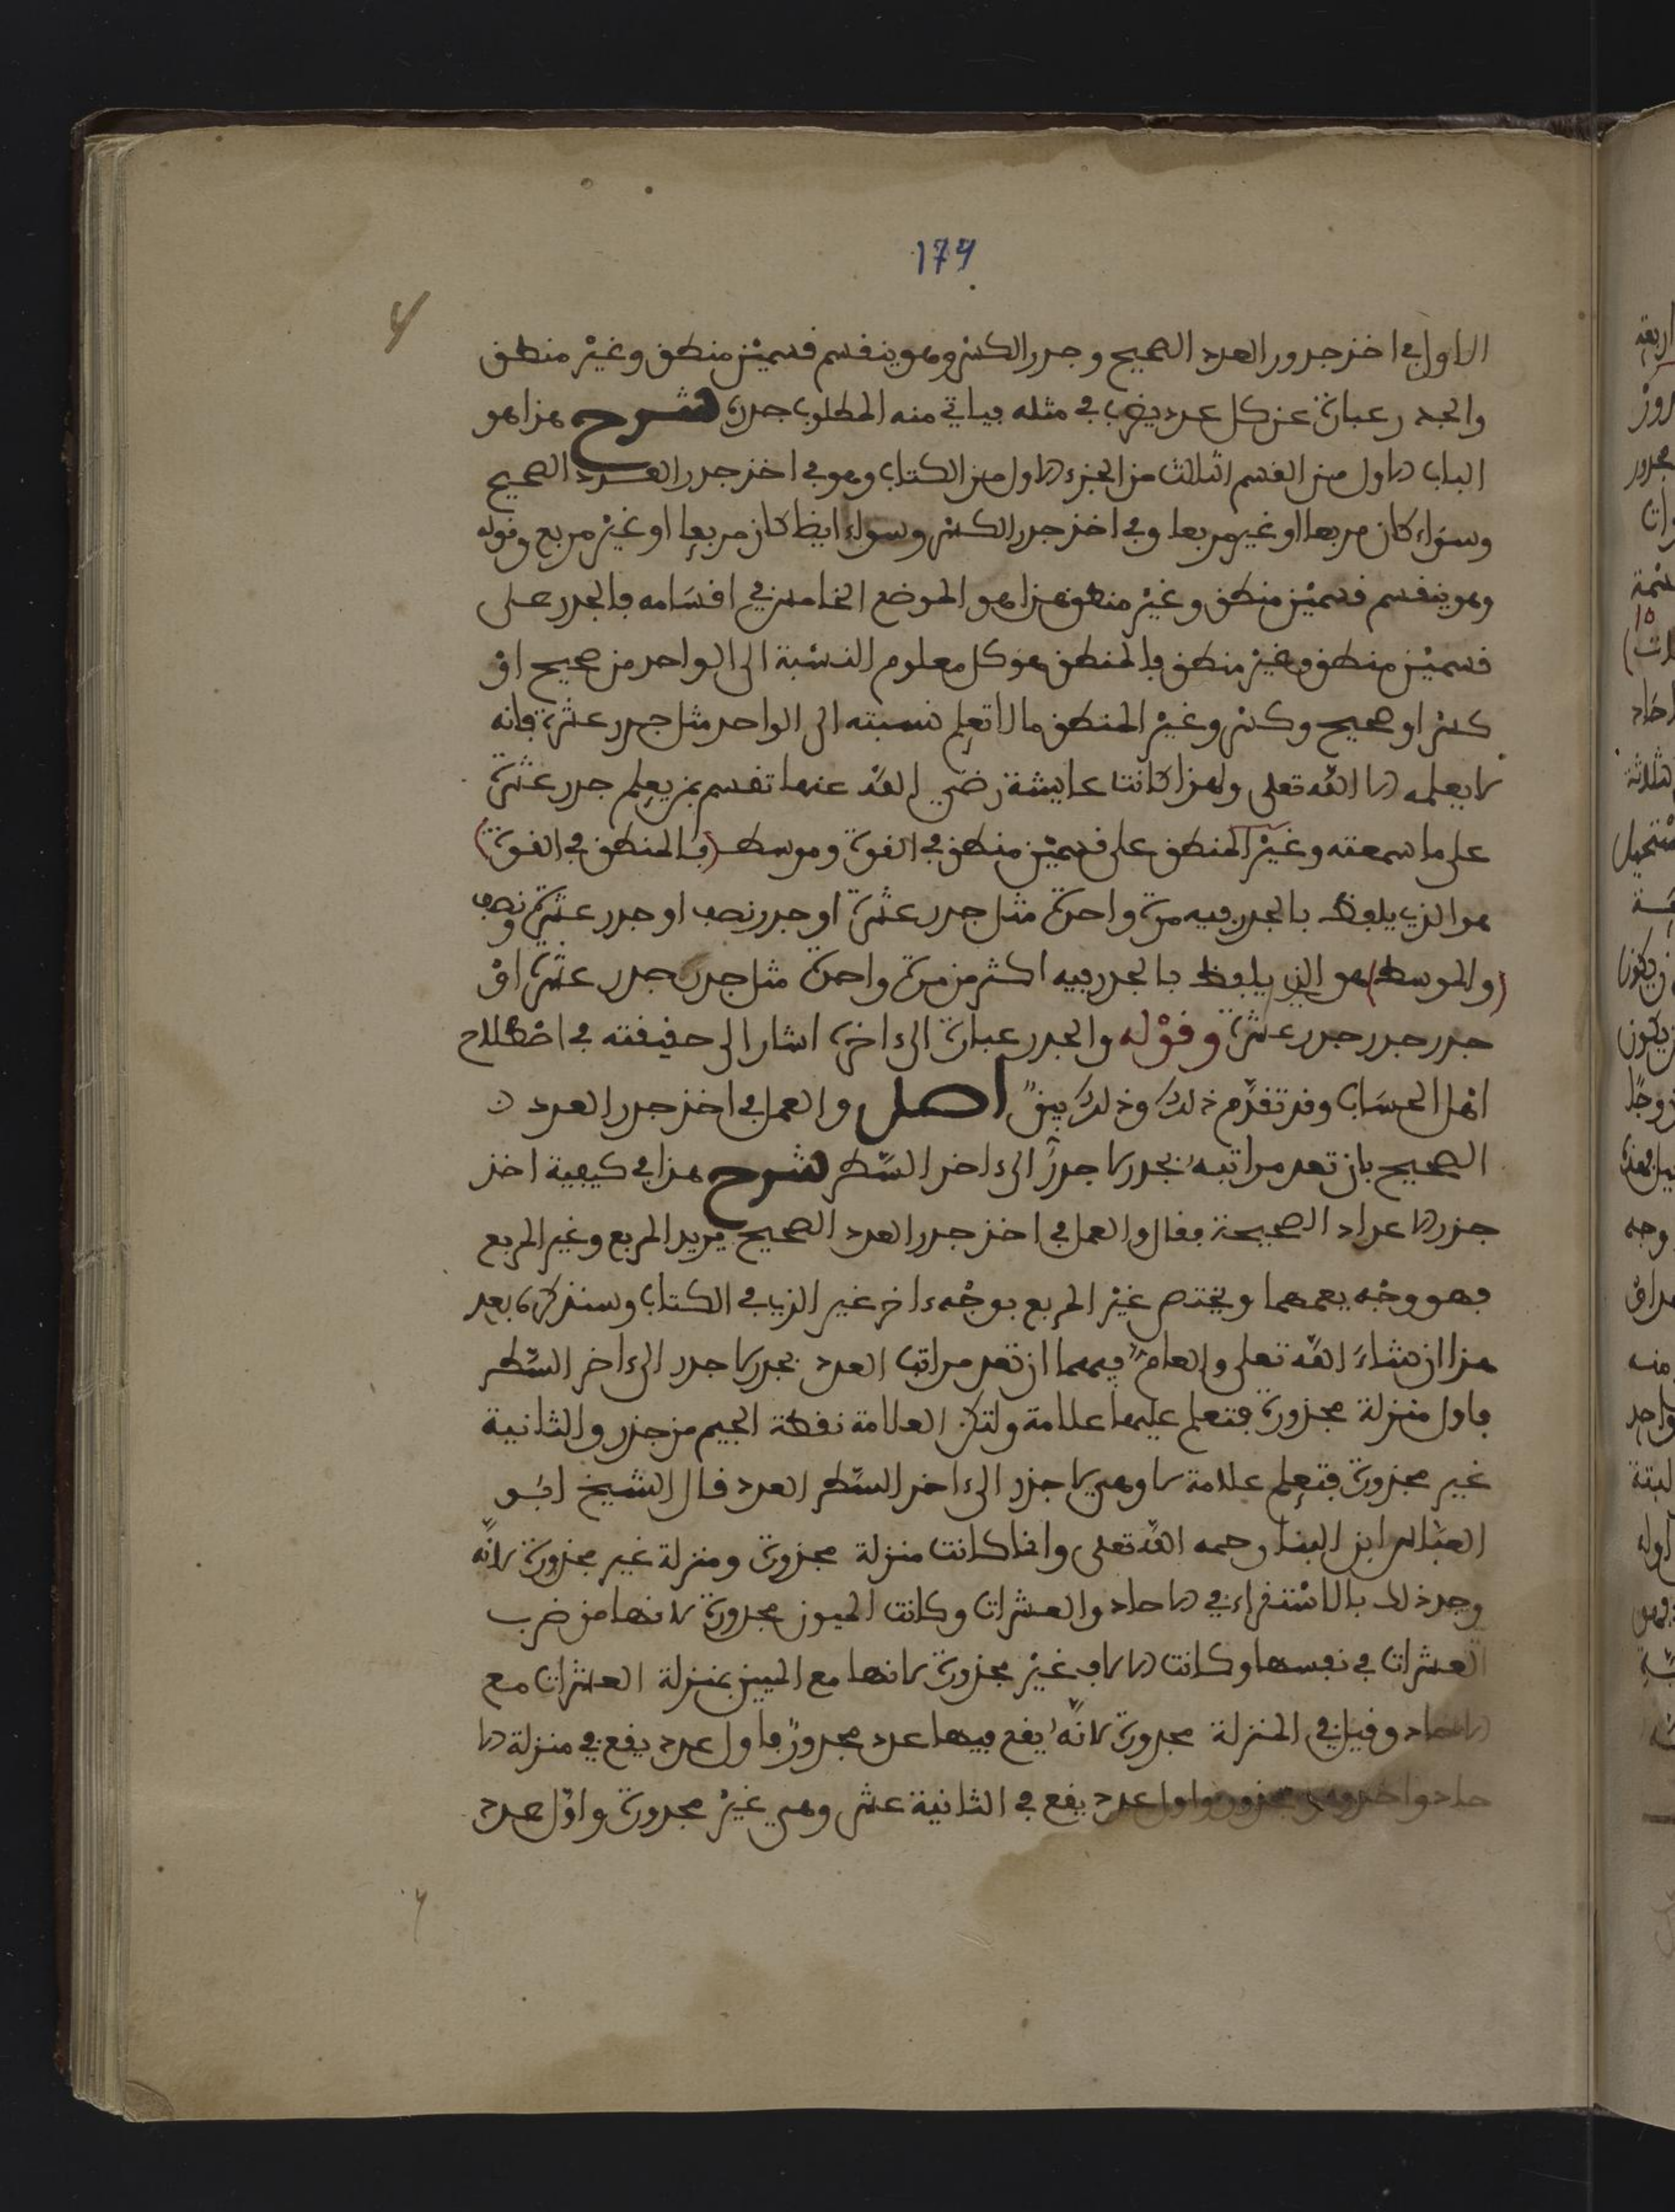 174
الاول في اخذ جذور العدد الصحيح وجدر الكسر وهو ينقسم قسمين منطق وغير منطق
والجدر عبارة عن كل عدد يضرب في مثله فياتي منه المطلوب جدره شرح هذا هو
الباب الاول من القسم الثالث من الجزء الاول من الكتاب وهو في اخذ جدر العدد الصحيح
وسواء كان مربعا او غير مربعا وفي اخذ جدر الكسر وسواء ايضا كان مربعا او غير مربع وقوله
وهو ينقسم قسمين منطق وغير منطق هذا هو الموضع الخامس في اقسامه فالجدر على
قسمين منطق وغير منطق فالمنطق هو كل معلوم النسبة الى الواحد من صحيح او
كسر او صحيح وكسر وغير المنطق ما لا تعلم نسبته الى الواحد مثل جدر عشرة فانه
لا يعلمه الا الله تعلى ولهذا كانت عايشة رضي الله عنها تقسم بمن يعلم جدر عشرة
على ما سمعته وغير المنطق على قسمين منطق في القوة وموسط (فالمنطق في القوة)
هو الذي يلفظ بالجدر فيه مرة واحدة مثل جدر عشرة او جدر نصف او جدر عشرة ونصف
(والموسط) هو الذي يلفظ بالجدر فيه اكثر من مرة واحدة مثل جدر جدر عشرة او
جدر جدر جدر عشرة وقوله والجدر عبارة الى ءاخره اشار الى حقيقته في اصطلاح
اهل الحساب وقد تقدم ذلك وذلك بين اصل والعمل في اخذ جدر العدد
الصحيح بان تعد مراتبه بجدر لا جدر الى ءاخر السطر شرح هذا في كيفية اخذ
جذر الاعداد الصحيحة فقال والعمل في اخذ جدر العدد الصحيح يريد المربع وغير المربع
فهو وجه يعمهما ويختص غير المربع بوجه ءاخر غير الذي في الكتاب وسنذكره بعد
هذا ان شاء الله تعلى والعام فيهما ان تعد مراتب العدد بجدر لا جدر الى ءاخر السطر
فاول منزلة مجذورة فتعلم عليها علامة ولتكن العلامة نقطة الجيم من جذر والثانية
غير مجذورة فتعلم علامة لا وهي لا جذر الى ءاخر السطر العدد قال الشيخ ابو
العباس ابن البنا رحمه الله تعلى وانما كانت منزلة مجذورة ومنزلة غير مجذورة لانه
وجد ذلك بالاستقراء في الاحاد والعشرات وكانت الميون مجدورة لانها من ضرب
العشرات في نفسها وكانت الالاف غير مجذورة لانها مع الميين بمنزلة العشرات مع
الاحاد وقيل في المنزلة مجدورة لانه يقع فيها عدد مجدور فاول عدد يقع في منزلة الا
حاد واحد وهو مجذور واول عدد يقع في الثانية عشر وهي غير مجدورة واول عدد